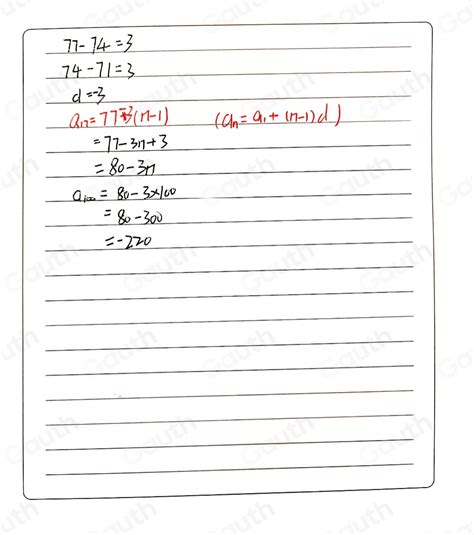 77-74=3
74-71=3
d=-3
aₙ=77-3(n-1) (aₙ=a₁+(n-1)d)
=77-3n+3
=80-3n
a₁₀₀=80-3×100
=80-300
=-220